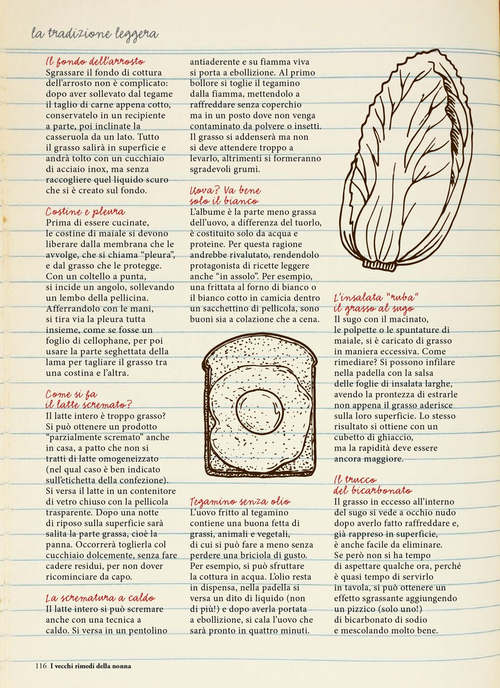 la tradizione leggera
Il fondo dell'arrosto
Sgrassare il fondo di cottura
dell'arrosto non è complicato:
dopo aver sollevato dal tegame
il taglio di carne appena cotto,
conservatelo in un recipiente
a parte, poi inclinate la
casseruola da un lato. Tutto
il grasso salirà in superficie e
andrà tolto con un cucchiaio
di acciaio inox, ma senza
raccogliere quel liquido scuro
che si è creato sul fondo.
Costine e pleura
Prima di essere cucinate,
le costine di maiale si devono
liberare dalla membrana che le
avvolge, che si chiama "pleura",
e dal grasso che le protegge.
Con un coltello a punta,
si incide un angolo, sollevando
un lembo della pellicina.
Afferrandolo con le mani,
si tira via la pleura tutta
insieme, come se fosse un
foglio di cellophane, per poi
usare la parte seghettata della
lama per tagliare il grasso tra
una costina e l'altra.
Come si fa
il latte scremato?
Il latte intero è troppo grasso?
Si può ottenere un prodotto
"parzialmente scremato" anche
in casa, a patto che non si
tratti di latte omogeneizzato
(nel qual caso è ben indicato
sull'etichetta della confezione).
Si versa il latte in un contenitore
di vetro chiuso con la pellicola
trasparente. Dopo una notte
di riposo sulla superficie sarà
salita la parte grassa, cioè la
panna. Occorrerà toglierla col
cucchiaio dolcemente, senza fare
cadere residui, per non dover
ricominciare da capo.
La scrematura a caldo
Il latte intero si può scremare
anche con una tecnica a
caldo. Si versa in un pentolino
antiaderente e su fiamma viva
si porta a ebollizione. Al primo
bollore si toglie il tegamino
dalla fiamma, mettendolo a
raffreddare senza coperchio
ma in un posto dove non venga
contaminato da polvere o insetti.
Il grasso si addenserà ma non
si deve attendere troppo a
levarlo, altrimenti si formeranno
sgradevoli grumi.
Uova? Va bene
solo il bianco
L'albume è la parte meno grassa
dell'uovo, a differenza del tuorlo,
è costituito solo da acqua e
proteine. Per questa ragione
andrebbe rivalutato, rendendolo
protagonista di ricette leggere
anche "in assolo". Per esempio,
una frittata al forno di bianco o
il bianco cotto in camicia dentro
un sacchettino di pellicola, sono
buoni sia a colazione che a cena.
Tegamino senza olio
L'uovo fritto al tegamino
contiene una buona fetta di
grassi, animali e vegetali,
di cui si può fare a meno senza
perdere una briciola di gusto.
Per esempio, si può sfruttare
la cottura in acqua. L'olio resta
in dispensa, nella padella si
versa un dito di liquido (non
di più!) e dopo averla portata
a ebollizione, si cala l'uovo che
sarà pronto in quattro minuti.
L'insalata "ruba"
il grasso al sugo
Il sugo con il macinato,
le polpette o le spuntature di
maiale, si è caricato di grasso
in maniera eccessiva. Come
rimediare? Si possono infilare
nella padella con la salsa
delle foglie di insalata larghe,
avendo la prontezza di estrarle
non appena il grasso aderisce
sulla loro superficie. Lo stesso
risultato si ottiene con un
cubetto di ghiaccio,
ma la rapidità deve essere
ancora maggiore.
Il trucco
del bicarbonato
Il grasso in eccesso all'interno
del sugo si vede a occhio nudo
dopo averlo fatto raffreddare e,
già rappreso in superficie,
è anche facile da eliminare.
Se però non si ha tempo
di aspettare qualche ora, perché
è quasi tempo di servirlo
in tavola, si può ottenere un
effetto sgrassante aggiungendo
un pizzico (solo uno!)
di bicarbonato di sodio
e mescolando molto bene.
116 I vecchi rimedi della nonna